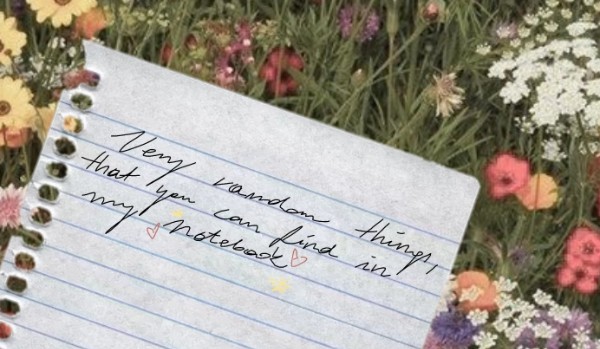 Very random things,
that you can find in
my notebook